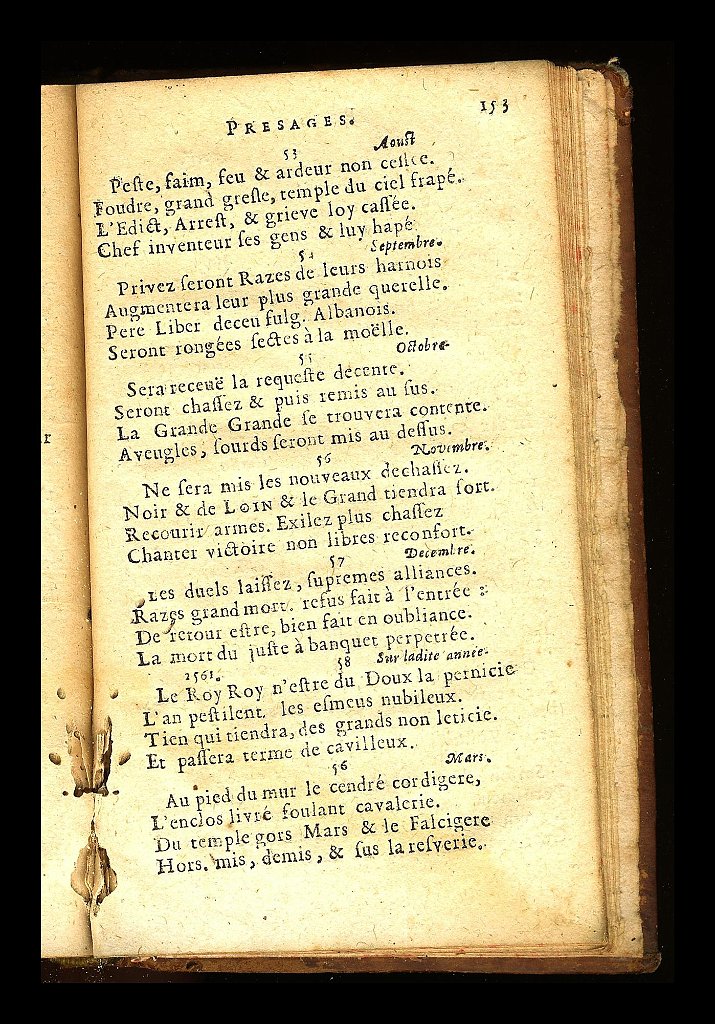 PRESAGES.
153
53
Aoust
Peſte, faim, feu & ardeur non ceſſee.
Foudre, grand greſle, temple du ciel frapé.
L'Edict, Arreſt, & grieve loy caſſée.
Chef inventeur ſes gens & luy hapé
54
Septembre.
Privez ſeront Razes de leurs harnois
Augmentera leur plus grande querelle.
Pere Liber deceu fulg. Albanois.
Seront rongées ſectes à la moëlle.
55
Octobre.
Sera receuë la requeſte decente.
Seront chaſſez & puis remis au ſus.
La Grande Grande ſe trouvera contente.
Aveugles, ſourds ſeront mis au deſſus.
56
Novembre.
Ne ſera mis les nouveaux dechaſſez.
Noir & de LOIN & le Grand tiendra fort.
Recourir armes. Exilez plus chaſſez
Chanter victoire non libres reconfort.
57
Decembre.
Les duels laiſſez, ſupremes alliances.
Razes grand mort. refus fait à l'entrée :
De retour eſtre, bien fait en oubliance.
La mort du juſte à banquet perpetrée.
58
Sur ladite année.
1561.
Le Roy Roy n'eſtre du Doux la pernicie
L'an peſtilent, les eſmeus nubileux.
Tien qui tiendra, des grands non leticie.
Et paſſera terme de cavilleux.
56
Mars.
Au pied du mur le cendré cordigere,
L'enclos livré foulant cavalerie.
Du temple gors Mars & le Falcigere
Hors. mis, demis, & ſus la reſverie.
r